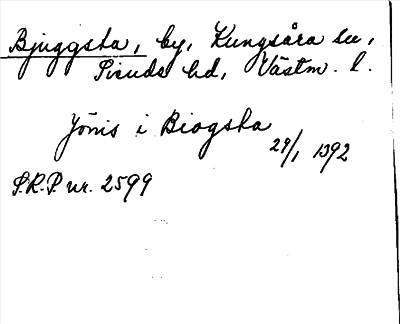 Bjuggsta, by, Kungsåra sn,
Siende hd, Västm. l.
Jönis i Biogsta
29/1 1392
S.R.P. nr. 2599